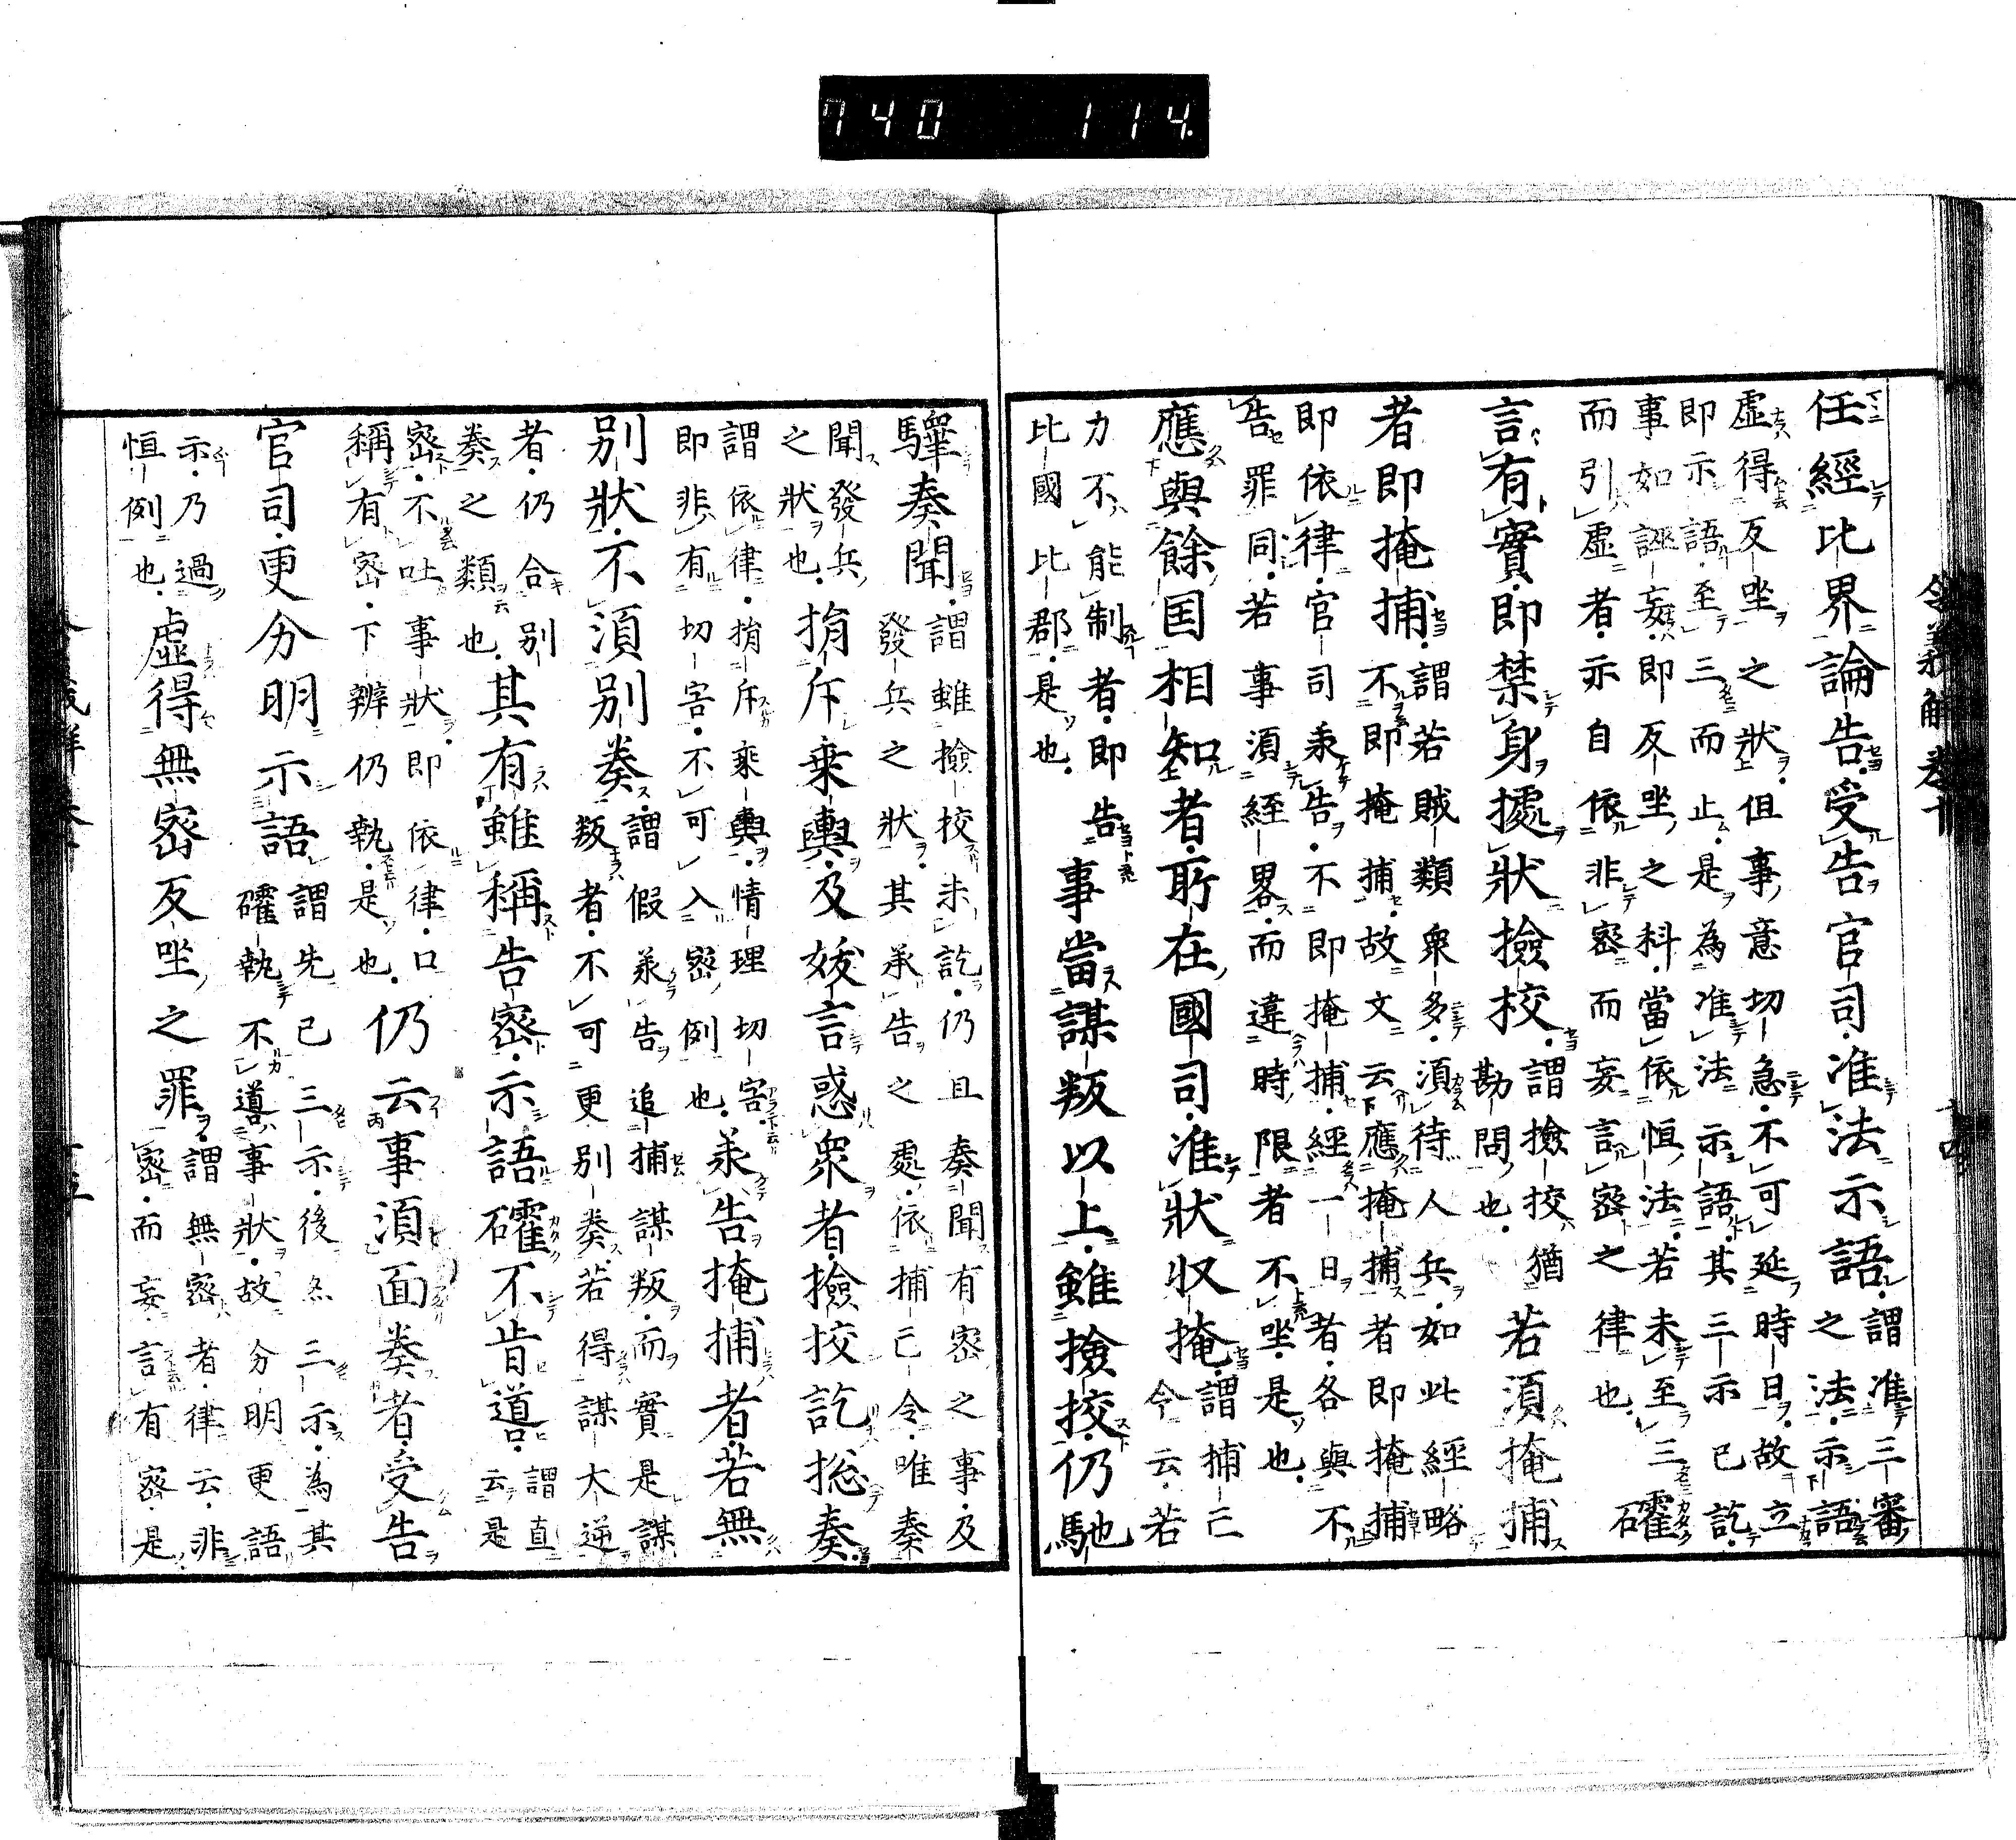 740 114
令義解卷十
任經比界論告受告官司准法示語謂准三審之法示語
虛得反坐之狀但事意切急不可延時日故立
即示語至三而止是為准法示語其三示已訖
事如誣妄即反坐之科當依恒法若未至三確
而引虛者亦自依非密而妄言密之律也
言有實即禁身據狀檢校謂檢挍猶勘問也若須掩捕
者即掩捕謂若賊類衆多須待人兵如此經略
不即掩捕故文云應掩捕者即掩捕
即依律官司承告不即掩捕經一日者各與不
告罪同若事須經畧而違時限者不坐是也
應與餘国相知者所在國司准狀収掩謂捕亡令云若
力不能制者即告
比國比郡是也
事當謀叛以上雖撿挍仍馳
驛奏聞謂雖撿校未訖仍且奏聞有密之事及
發兵之狀其承告之處依捕亡令唯奏
聞發兵
之狀也
指斥乗輿及妖言惑衆者撿挍訖総奏
謂依律指斥乘輿情理切害
即非有切害不可入密例也
承告掩捕者若無
別狀不須別奏謂假承告追捕謀叛而實是謀
叛者不可更別奏若得謀大逆
者仍合別
奏之類也
其有雖稱告密示語確不肯道謂直云是
密不吐事狀即依律口
稱有密下辨仍執是也
仍云事須面奏者受告
官司更分明示語謂先已三示後亦三示為其
確執不道事狀故分明更語
示乃過
恒例也
虛得無密反坐之罪謂無密者律云非
密而妄言有密是